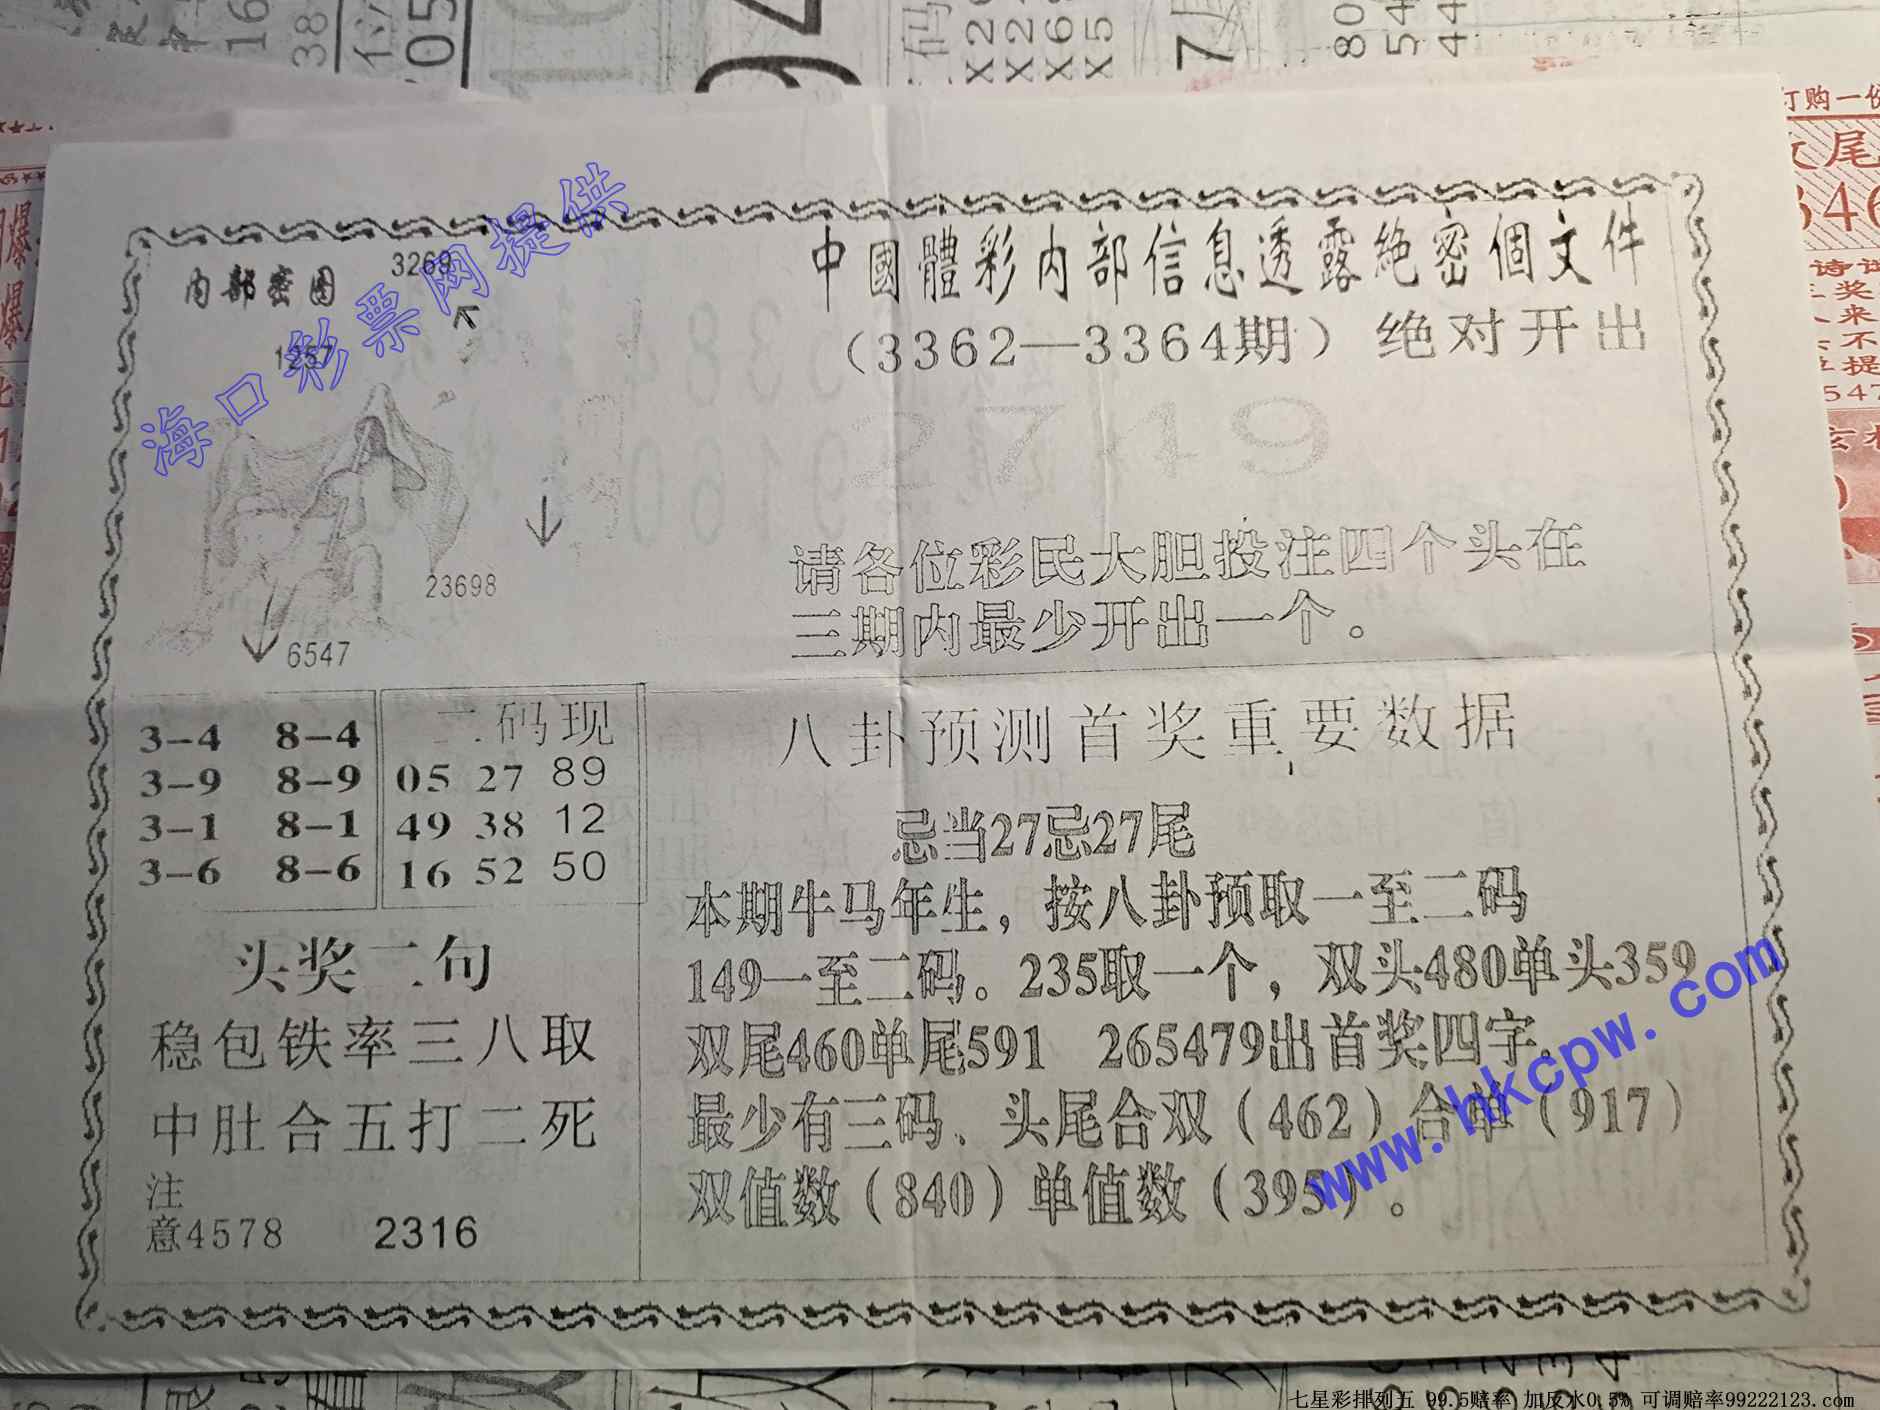 中國體彩内部信息透露絶密個文件
（3362—3364期）绝对开出
2749
请各位彩民大胆投注四个头在
三期内最少开出一个。
内部密图
3269
1257
23698
6547
3-4 8-4
3-9 8-9
3-1 8-1
3-6 8-6
二码现
05 27 89
49 38 12
16 52 50
头奖二句
稳包铁率三八取
中肚合五打二死
注
意4578 2316
八卦预测首奖重要数据
忌当27忌27尾
本期牛马年生，按八卦预取一至二码
149一至二码。235取一个，双头480单头359
双尾460单尾591 265479出首奖四字。
最少有三码、头尾合双（462）合单（917）
双值数（840）单值数（395）。
海口彩票网提供
www.hkcpw.com
订购一份
七星彩排列五 99.5赔率 加反水0.5% 可调赔率99222123.com